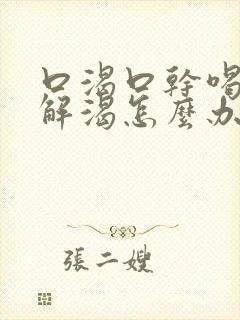 口渴口幹喝
解渴怎麼办
張二嫂